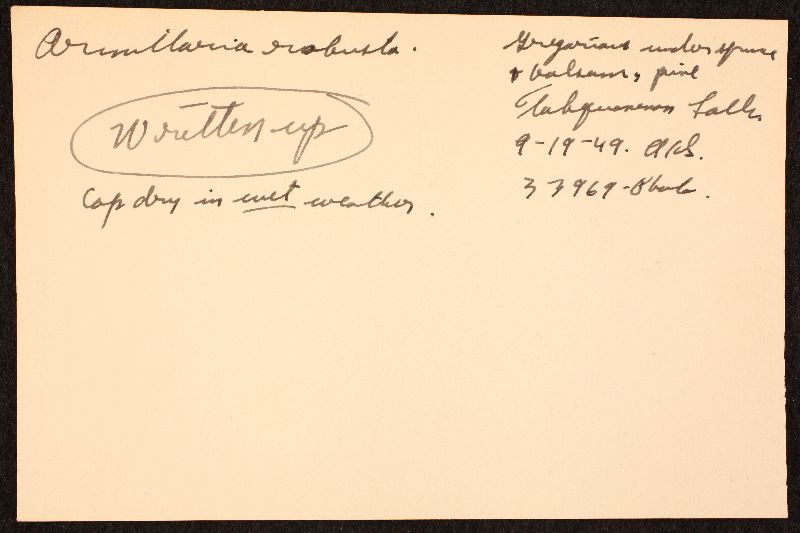 Armillaria robusta.
Written up
Cap dry in wet weather.
Gregarious under spruce
& balsam, pine
Tahquamenon Falls
9-19-49. AHS.
33969-Photo.